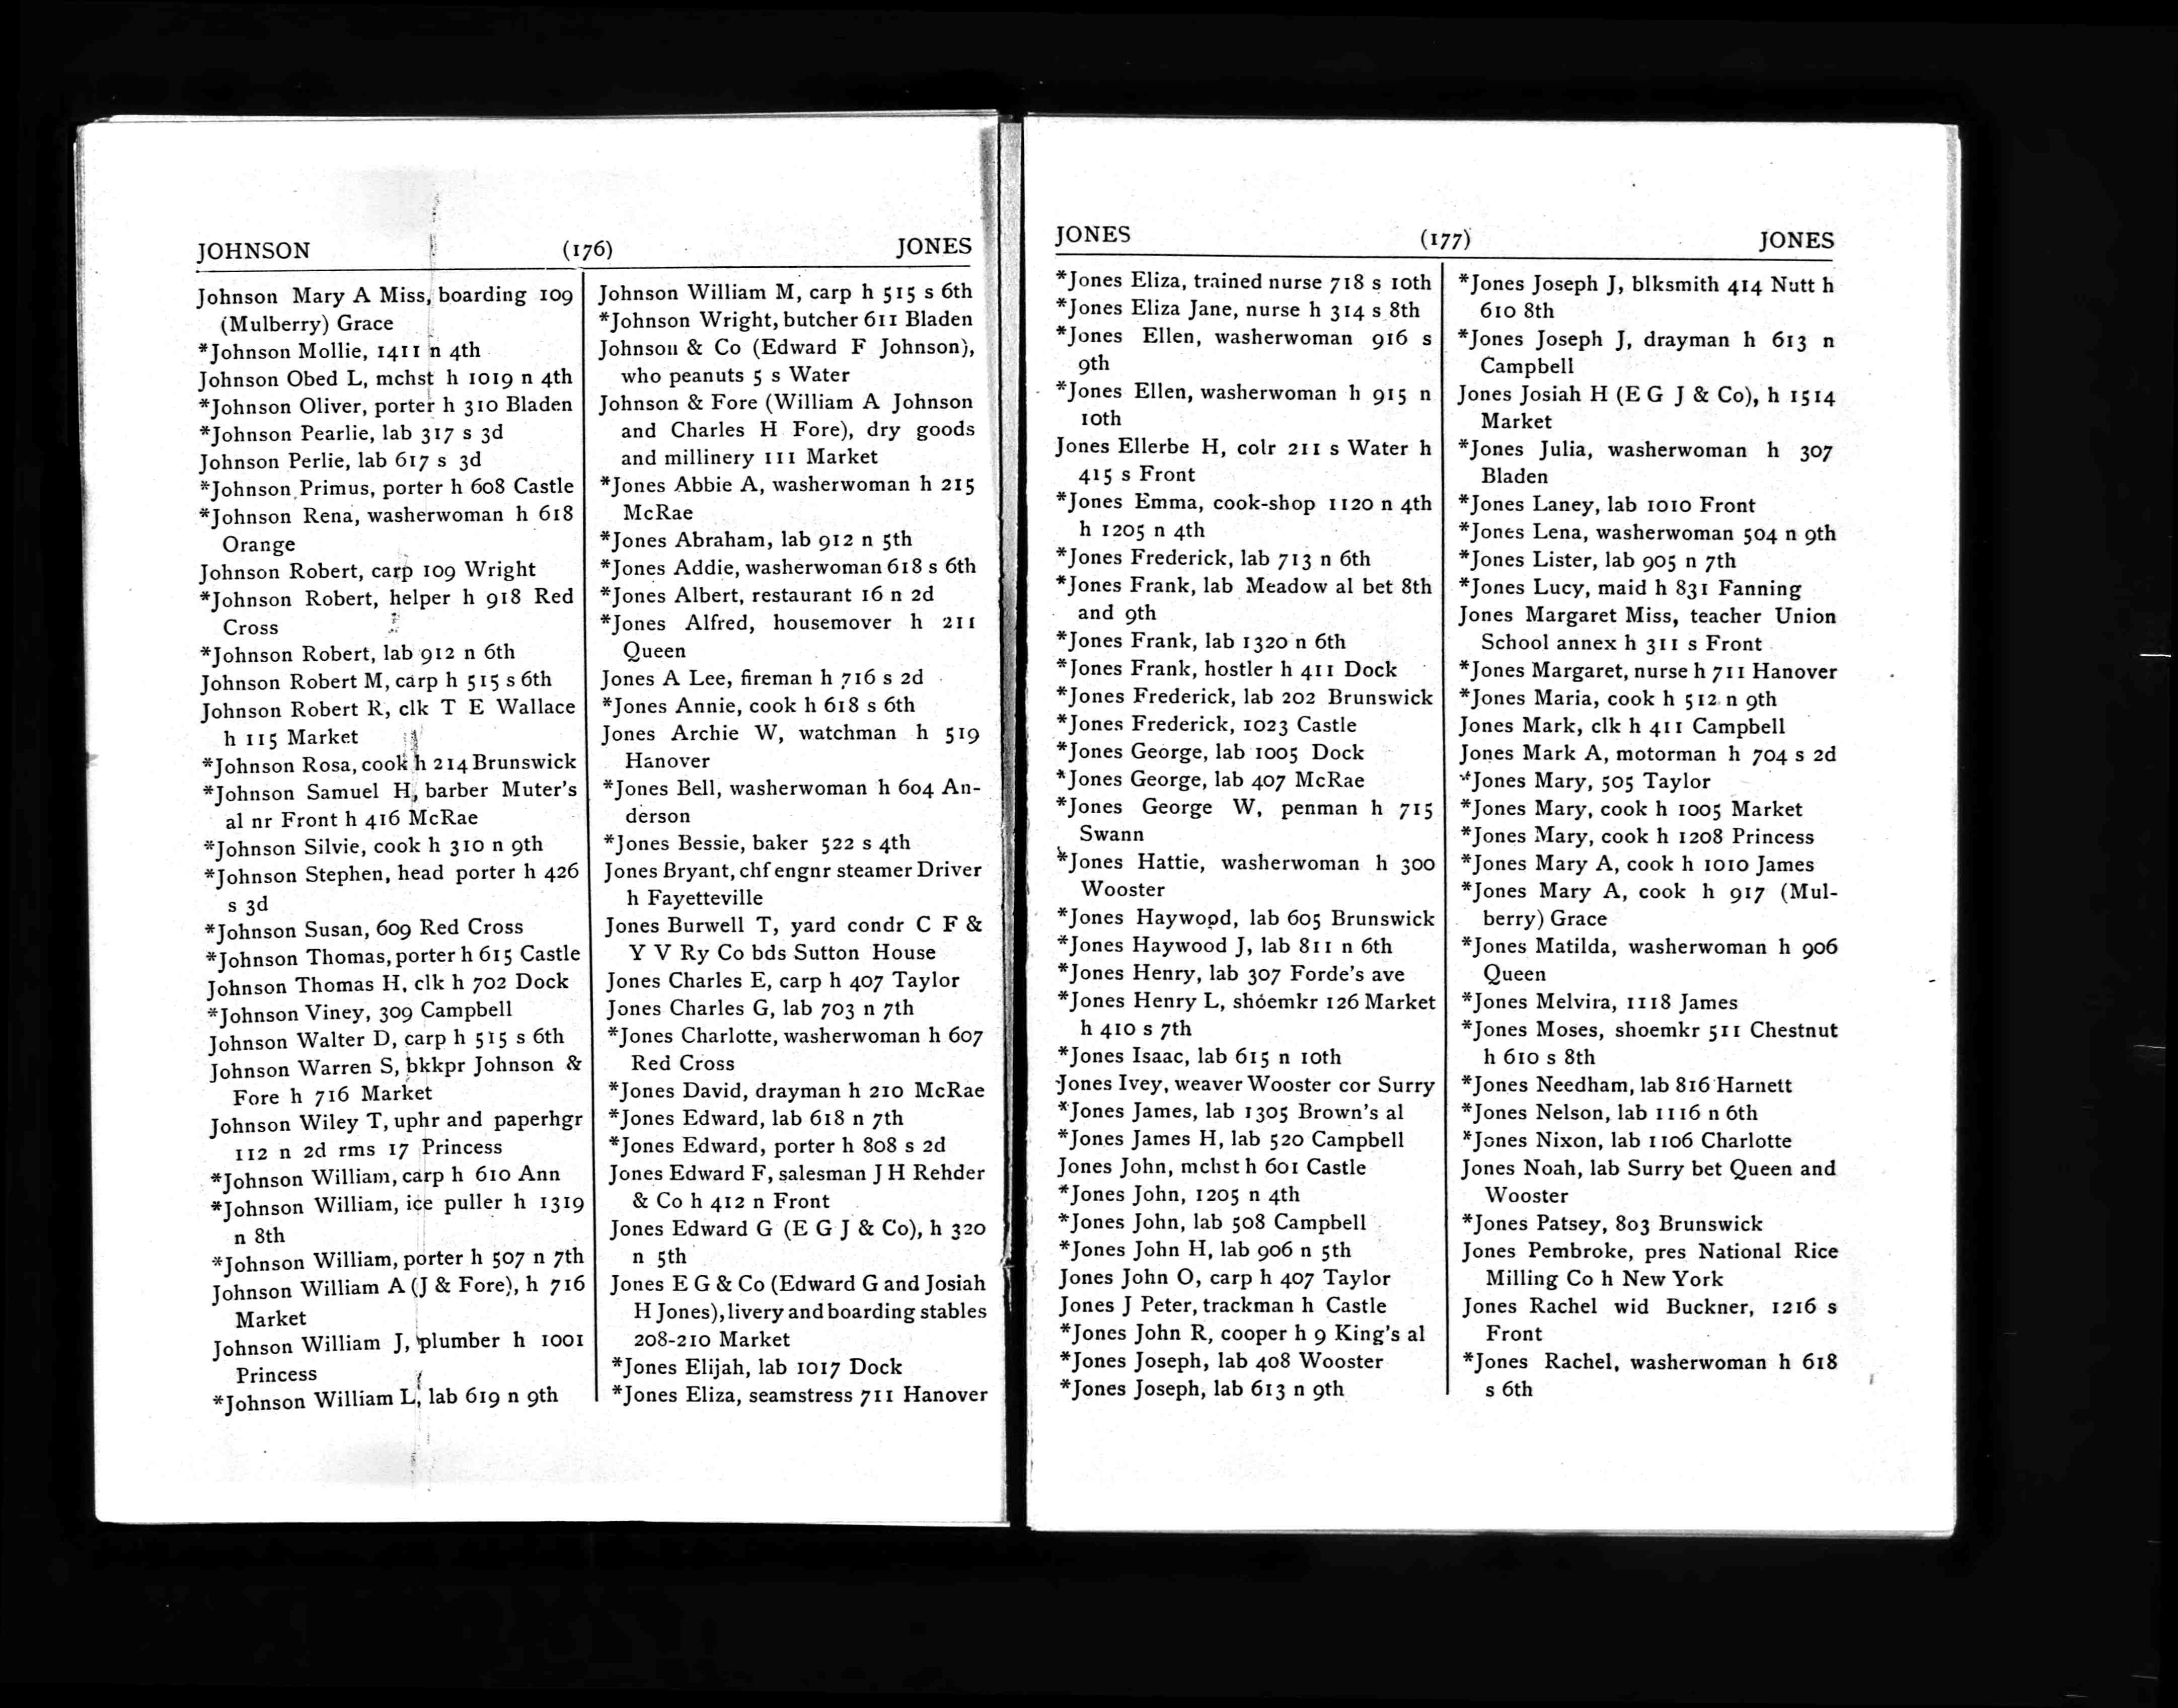 JOHNSON (176) JONES
Johnson Mary A Miss, boarding 109
(Mulberry) Grace
*Johnson Mollie, 1411 n 4th
Johnson Obed L, mchst h 1019 n 4th
*Johnson Oliver, porter h 310 Bladen
*Johnson Pearlie, lab 317 s 3d
Johnson Perlie, lab 617 s 3d
*Johnson Primus, porter h 608 Castle
*Johnson Rena, washerwoman h 618
Orange
Johnson Robert, carp 109 Wright
*Johnson Robert, helper h 918 Red
Cross
*Johnson Robert, lab 912 n 6th
Johnson Robert M, carp h 515 s 6th
Johnson Robert R, clk T E Wallace
h 115 Market
*Johnson Rosa, cook h 214 Brunswick
*Johnson Samuel H, barber Muter's
al nr Front h 416 McRae
*Johnson Silvie, cook h 310 n 9th
*Johnson Stephen, head porter h 426
s 3d
*Johnson Susan, 609 Red Cross
*Johnson Thomas, porter h 615 Castle
Johnson Thomas H, clk h 702 Dock
*Johnson Viney, 309 Campbell
Johnson Walter D, carp h 515 s 6th
Johnson Warren S, bkkpr Johnson &
Fore h 716 Market
Johnson Wiley T, uphr and paperhgr
112 n 2d rms 17 Princess
*Johnson William, carp h 610 Ann
*Johnson William, ice puller h 1319
n 8th
*Johnson William, porter h 507 n 7th
Johnson William A (J & Fore), h 716
Market
Johnson William J, plumber h 1001
Princess
*Johnson William L, lab 619 n 9th
Johnson William M, carp h 515 s 6th
*Johnson Wright, butcher 611 Bladen
Johnson & Co (Edward F Johnson),
who peanuts 5 s Water
Johnson & Fore (William A Johnson
and Charles H Fore), dry goods
and millinery 111 Market
*Jones Abbie A, washerwoman h 215
McRae
*Jones Abraham, lab 912 n 5th
*Jones Addie, washerwoman 618 s 6th
*Jones Albert, restaurant 16 n 2d
*Jones Alfred, housemover h 211
Queen
Jones A Lee, fireman h 716 s 2d
*Jones Annie, cook h 618 s 6th
Jones Archie W, watchman h 519
Hanover
*Jones Bell, washerwoman h 604 An-
derson
*Jones Bessie, baker 522 s 4th
Jones Bryant, chf engnr steamer Driver
h Fayetteville
Jones Burwell T, yard condr C F &
Y V Ry Co bds Sutton House
Jones Charles E, carp h 407 Taylor
Jones Charles G, lab 703 n 7th
*Jones Charlotte, washerwoman h 607
Red Cross
*Jones David, drayman h 210 McRae
*Jones Edward, lab 618 n 7th
*Jones Edward, porter h 808 s 2d
Jones Edward F, salesman J H Rehder
& Co h 412 n Front
Jones Edward G (E G J & Co), h 320
n 5th
Jones E G & Co (Edward G and Josiah
H Jones), livery and boarding stables
208-210 Market
*Jones Elijah, lab 1017 Dock
*Jones Eliza, seamstress 711 Hanover
JONES (177) JONES
*Jones Eliza, trained nurse 718 s 10th
*Jones Eliza Jane, nurse h 314 s 8th
*Jones Ellen, washerwoman 916 s
9th
*Jones Ellen, washerwoman h 915 n
10th
Jones Ellerbe H, colr 211 s Water h
415 s Front
*Jones Emma, cook-shop 1120 n 4th
h 1205 n 4th
*Jones Frederick, lab 713 n 6th
*Jones Frank, lab Meadow al bet 8th
and 9th
*Jones Frank, lab 1320 n 6th
*Jones Frank, hostler h 411 Dock
*Jones Frederick, lab 202 Brunswick
*Jones Frederick, 1023 Castle
*Jones George, lab 1005 Dock
*Jones George, lab 407 McRae
*Jones George W, penman h 715
Swann
*Jones Hattie, washerwoman h 300
Wooster
*Jones Haywood, lab 605 Brunswick
*Jones Haywood J, lab 811 n 6th
*Jones Henry, lab 307 Forde's ave
*Jones Henry L, shoemkr 126 Market
h 410 s 7th
*Jones Isaac, lab 615 n 10th
Jones Ivey, weaver Wooster cor Surry
*Jones James, lab 1305 Brown's al
*Jones James H, lab 520 Campbell
Jones John, mchst h 601 Castle
*Jones John, 1205 n 4th
*Jones John, lab 508 Campbell
*Jones John H, lab 906 n 5th
Jones John O, carp h 407 Taylor
Jones J Peter, trackman h Castle
*Jones John R, cooper h 9 King's al
*Jones Joseph, lab 408 Wooster
*Jones Joseph, lab 613 n 9th
*Jones Joseph J, blksmith 414 Nutt h
610 8th
*Jones Joseph J, drayman h 613 n
Campbell
Jones Josiah H (E G J & Co), h 1514
Market
*Jones Julia, washerwoman h 307
Bladen
*Jones Laney, lab 1010 Front
*Jones Lena, washerwoman 504 n 9th
*Jones Lister, lab 905 n 7th
*Jones Lucy, maid h 831 Fanning
Jones Margaret Miss, teacher Union
School annex h 311 s Front
*Jones Margaret, nurse h 711 Hanover
*Jones Maria, cook h 512 n 9th
Jones Mark, clk h 411 Campbell
Jones Mark A, motorman h 704 s 2d
*Jones Mary, 505 Taylor
*Jones Mary, cook h 1005 Market
*Jones Mary, cook h 1208 Princess
*Jones Mary A, cook h 1010 James
*Jones Mary A, cook h 917 (Mul-
berry) Grace
*Jones Matilda, washerwoman h 906
Queen
*Jones Melvira, 1118 James
*Jones Moses, shoemkr 511 Chestnut
h 610 s 8th
*Jones Needham, lab 816 Harnett
*Jones Nelson, lab 1116 n 6th
*Jones Nixon, lab 1106 Charlotte
Jones Noah, lab Surry bet Queen and
Wooster
*Jones Patsey, 803 Brunswick
Jones Pembroke, pres National Rice
Milling Co h New York
Jones Rachel wid Buckner, 1216 s
Front
*Jones Rachel, washerwoman h 618
s 6th